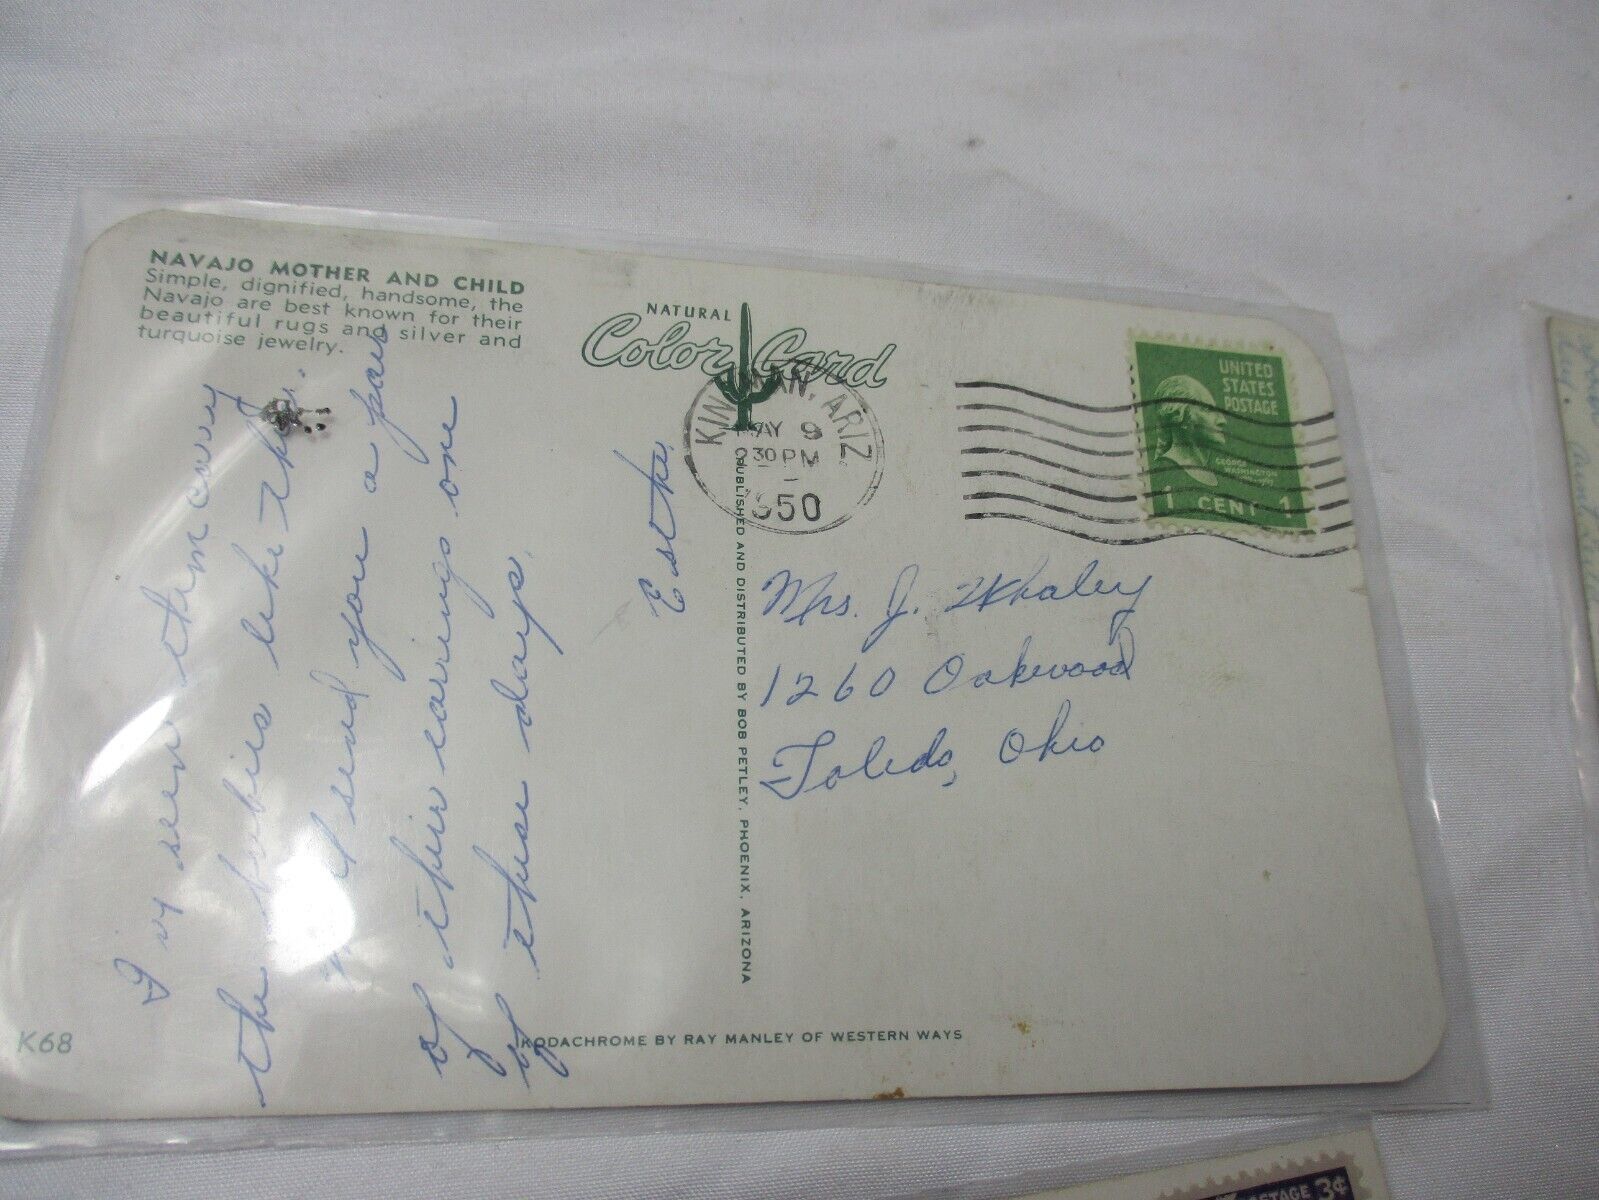 NAVAJO MOTHER AND CHILD
Simple, dignified, handsome, the
Navajo are best known for their
beautiful rugs and silver and
turquoise jewelry.
I've seen them carry
the babies like this.
send you a pair
of their earrings one
of these days.
Esther
NATURAL
Color Card
KINGMAN, ARIZ.
MAY 9
30 PM
1950
UNITED
STATES
POSTAGE
GEORGE
WASHINGTON
1 CENT 1
Mrs. J. Whaley
1260 Oakwood
Toledo, Ohio
PUBLISHED AND DISTRIBUTED BY BOB PETLEY, PHOENIX, ARIZONA
KODACHROME BY RAY MANLEY OF WESTERN WAYS
K68
POSTAGE 3¢